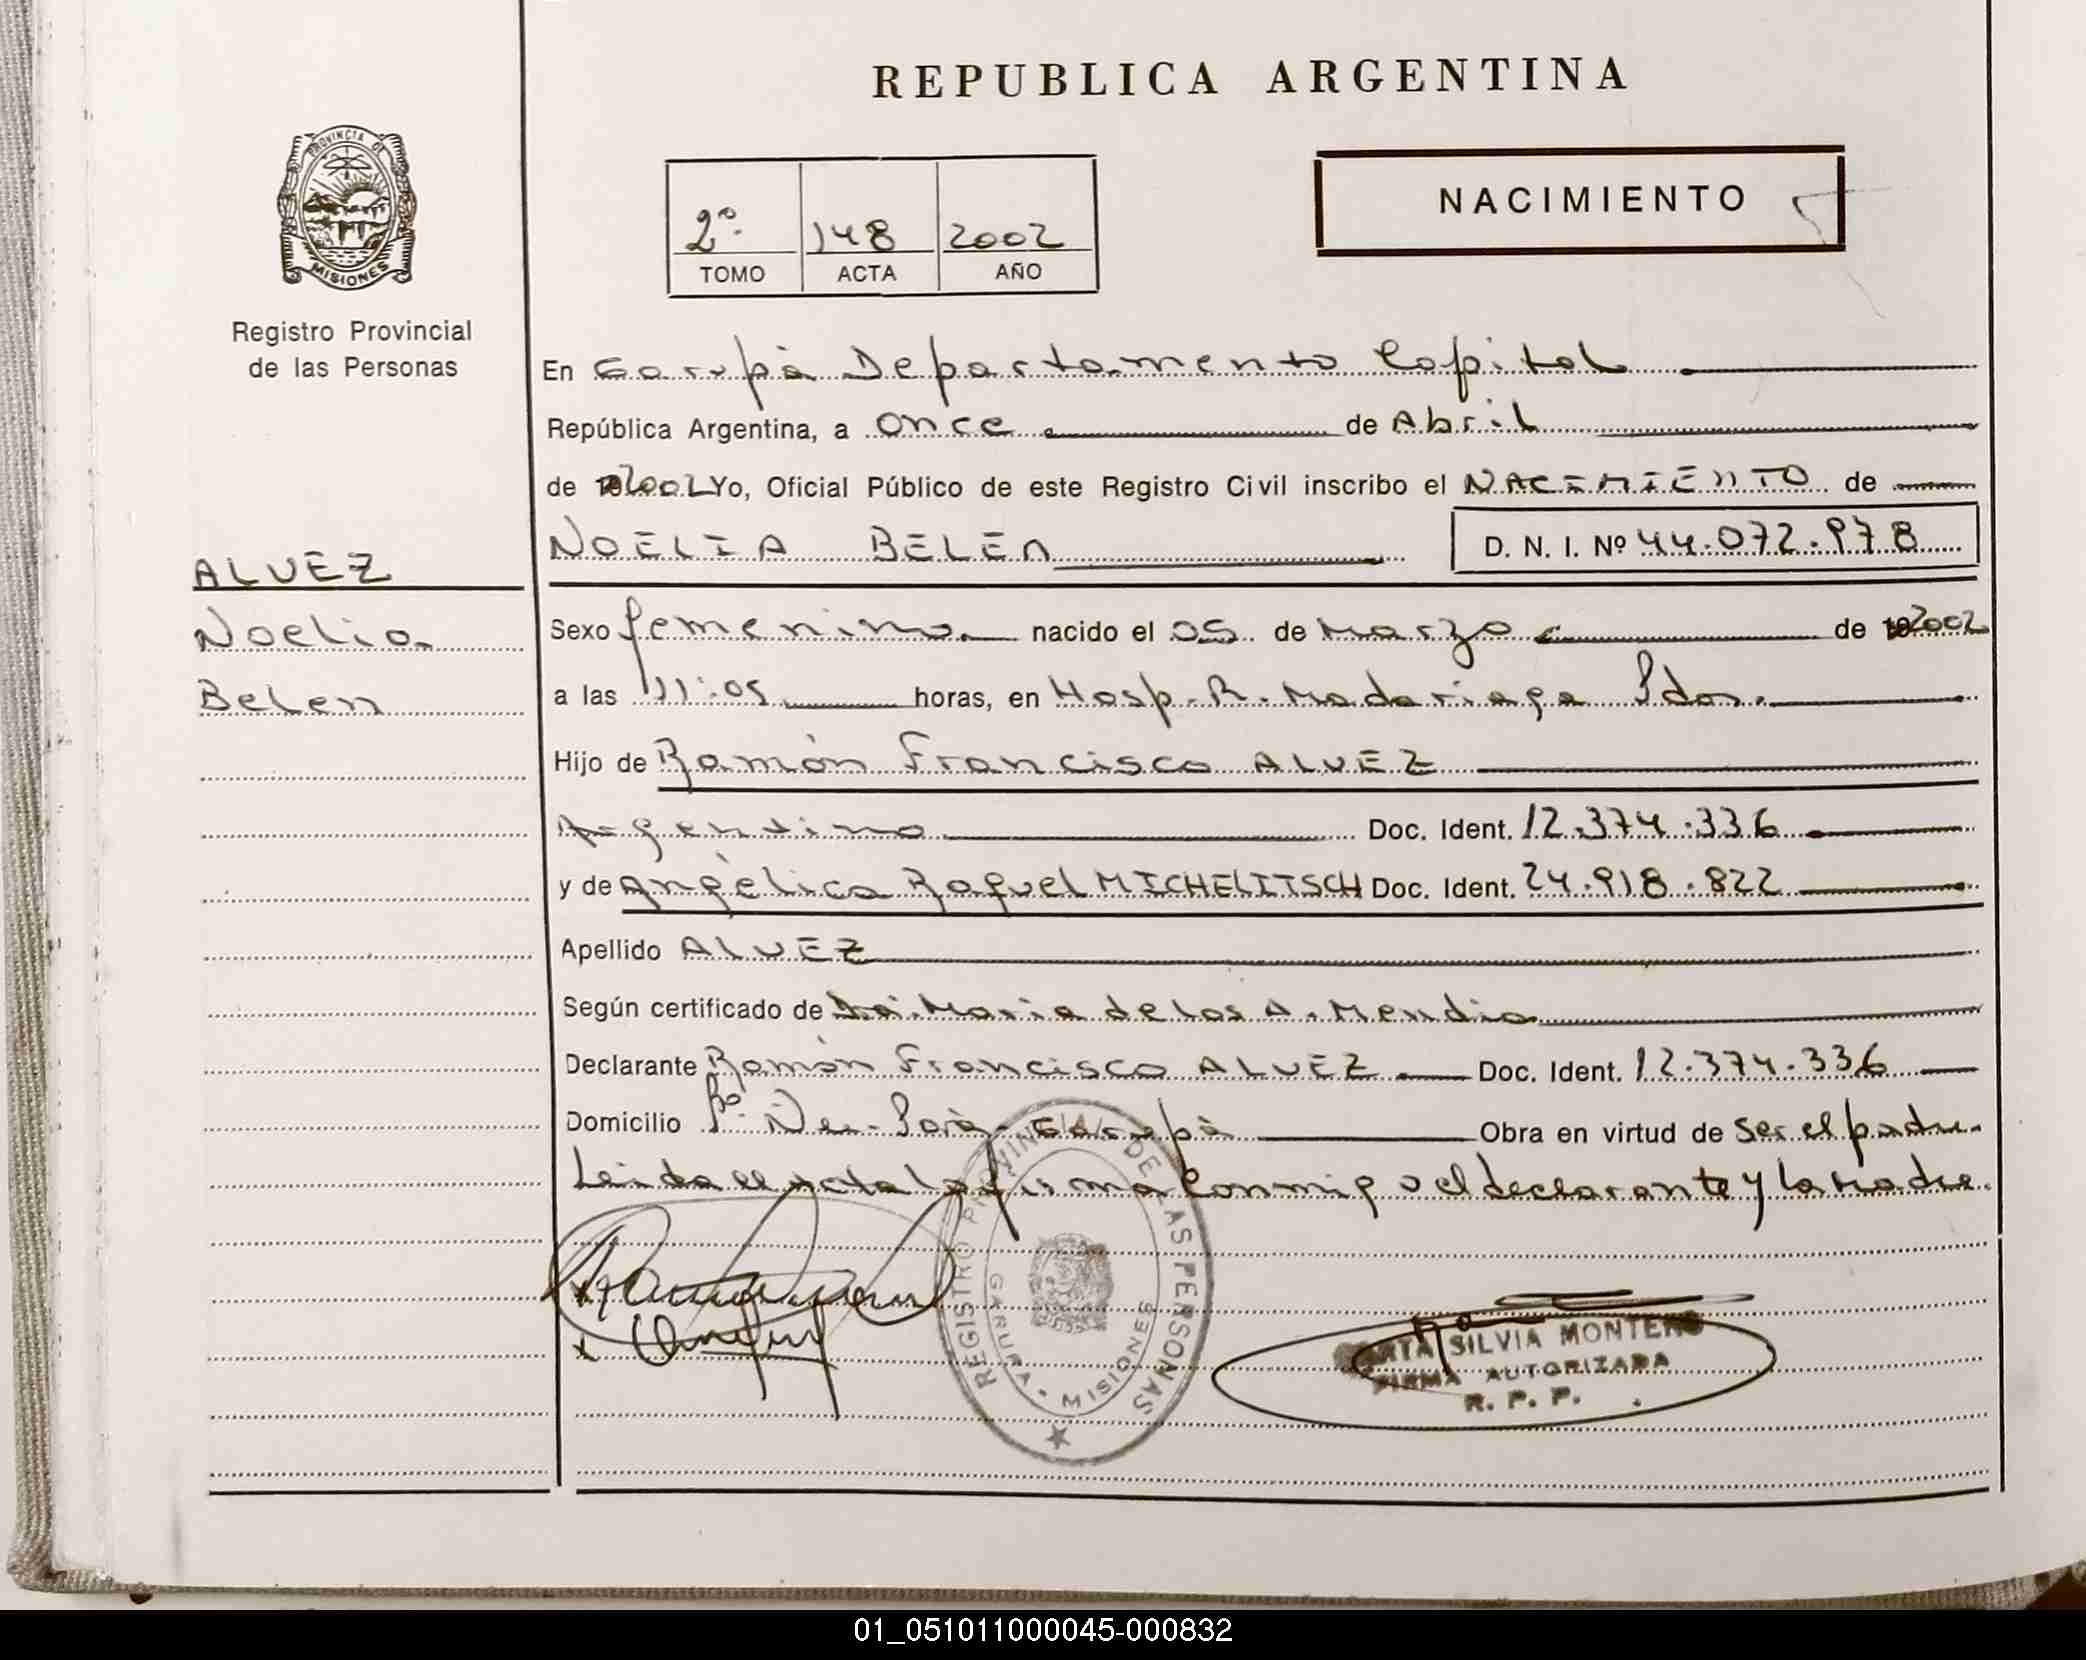 REPUBLICA ARGENTINA
PROVINCIA DE
MISIONES
Registro Provincial
de las Personas
2º TOMO
148 ACTA
2002 AÑO
NACIMIENTO
En Garupá Departamento Capital
República Argentina, a once de Abril
de 2002 Yo, Oficial Público de este Registro Civil inscribo el NACIMIENTO de
NOELIA BELEN D. N. I. Nº 44.072.978
ALVEZ
Noelia
Belen
Sexo femenino nacido el 05 de Marzo de 2002
a las 11:05 horas, en Hosp. R. Madariaga Pdas.
Hijo de Ramón Francisco ALVEZ
Argentino Doc. Ident. 12.374.336
y de Angélica Raquel MICHELITSCH Doc. Ident. 24.918.822
Apellido ALVEZ
Según certificado de Dra. Maria de los A. Mendia
Declarante Ramón Francisco ALVEZ Doc. Ident. 12.374.336
Domicilio Bº Ñu Porá Garupá Obra en virtud de ser el padre.
Leida el acta la firma conmigo el declarante y la madre.
REGISTRO PROVINCIAL DE LAS PERSONAS
GARUPA • MISIONES
SILVIA MONTERO
FIRMA AUTORIZADA
R. P. P.
01_051011000045-000832